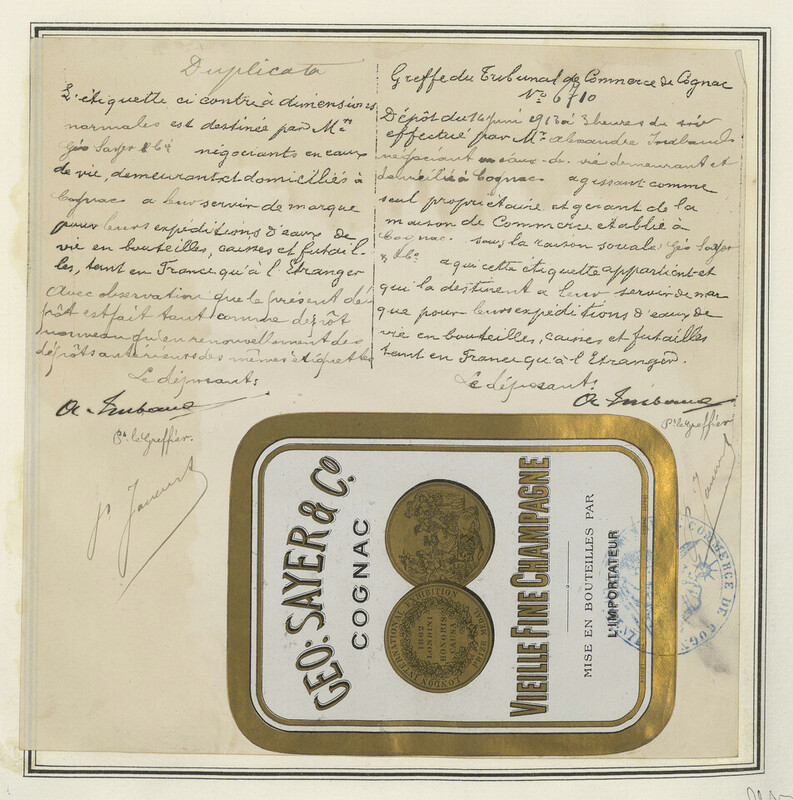 Duplicata
L'étiquette ci contre à dimensions
normales est destinée par Mrs
Géo Sayer & Cie négociants en eaux
de vie, demeurant et domiciliés à
Cognac a leur servir de marque
pour leurs expéditions d'eaux de
vie en bouteilles, caisses et futail-
les, tant en France qu'à l'Etranger
Avec observation que le présent dé-
pôt est fait tant comme dépôt
nouveau qu'en renouvellement des
dépôts antérieurs des mêmes étiquettes
Le déposant:
Pr. le Greffier.
Greffe du Tribunal de Commerce de Cognac
No 6710
Dépôt du 14 Juin 1913 à 3 heures du soir
effectué par Mr Alexandre
négociant en eaux-de-vie demeurant et
domicilié à Cognac agissant comme
seul propriétaire et gérant de la
maison de Commerce établie à
Cognac. sous la raison sociale Géo Sayer
& Cie a qui cette étiquette appartient et
qui la destinent a leur servir de mar
que pour leurs expéditions d'eaux de
vie en bouteilles, caisses et futailles
tant en France qu'à l'Etranger.
Le déposant:
Pr. le Greffier.
GEO: SAYER & Co
COGNAC
LONDON INTERNATIONAL EXHIBITION
1862
LONDINI
HONORIS
CAUSA
VIEILLE FINE CHAMPAGNE
MISE EN BOUTEILLES PAR
L'IMPORTATEUR
COMMERCE DE COGN